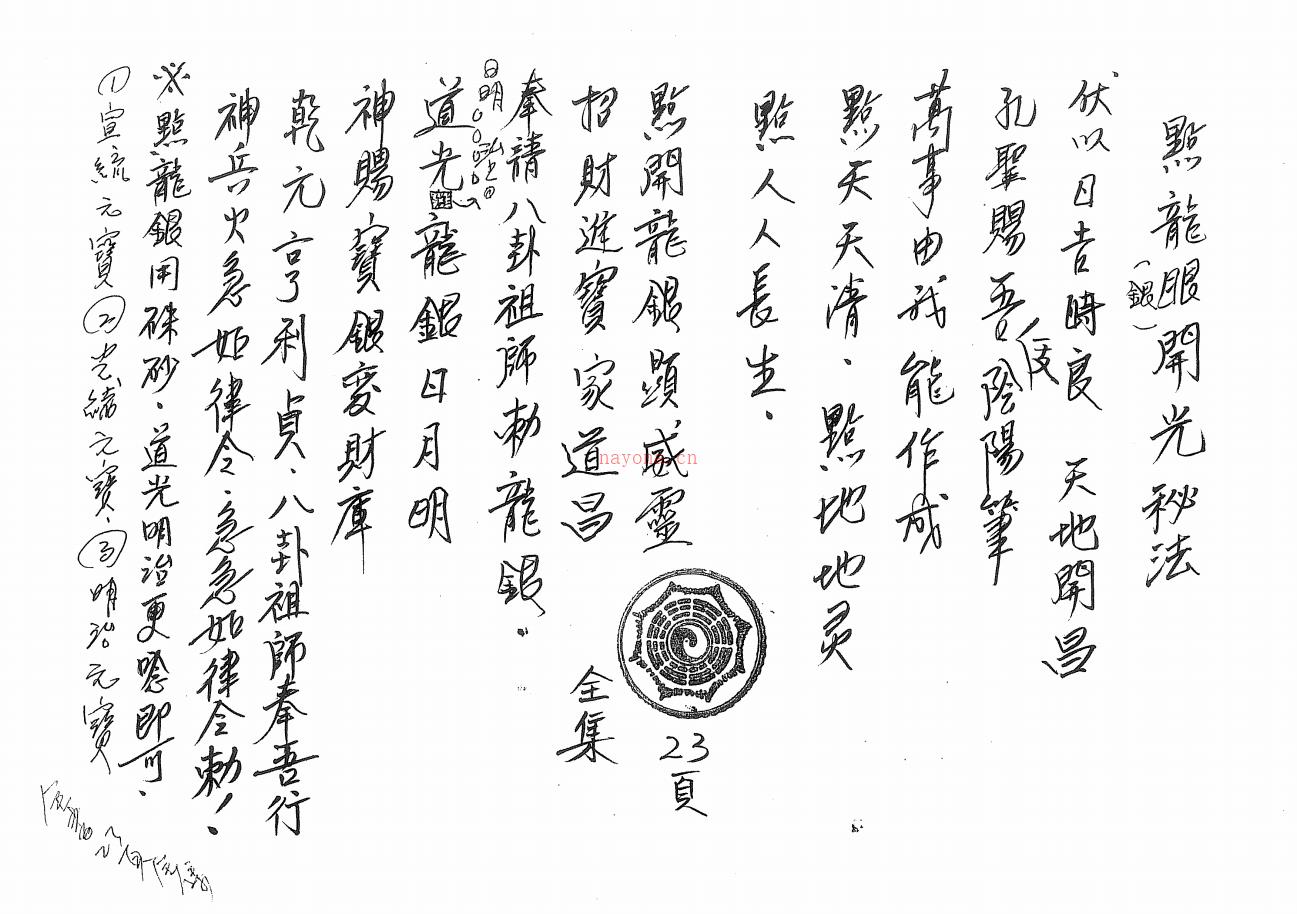 點龍眼開光秘法
(銀)
伏以日吉時良 天地開昌
孔聖賜吾陰陽筆
(支
萬事由我能作成
點天天清、點地地灵
點人人長生、
點開龍銀顕威靈
招財進寶家道昌
奉請八卦祖師勅龍銀、
明治
道光龍銀日月明
神賜寶銀变財庫
乾元亨利貞、八卦祖師奉吾行
神兵火急如律令、急急如律令勅!
※點龍銀用硃砂、道光明治更唸即可、
①宣統元寶②光緒元寶、③明治元寶
全集
23頁
nayona.cn